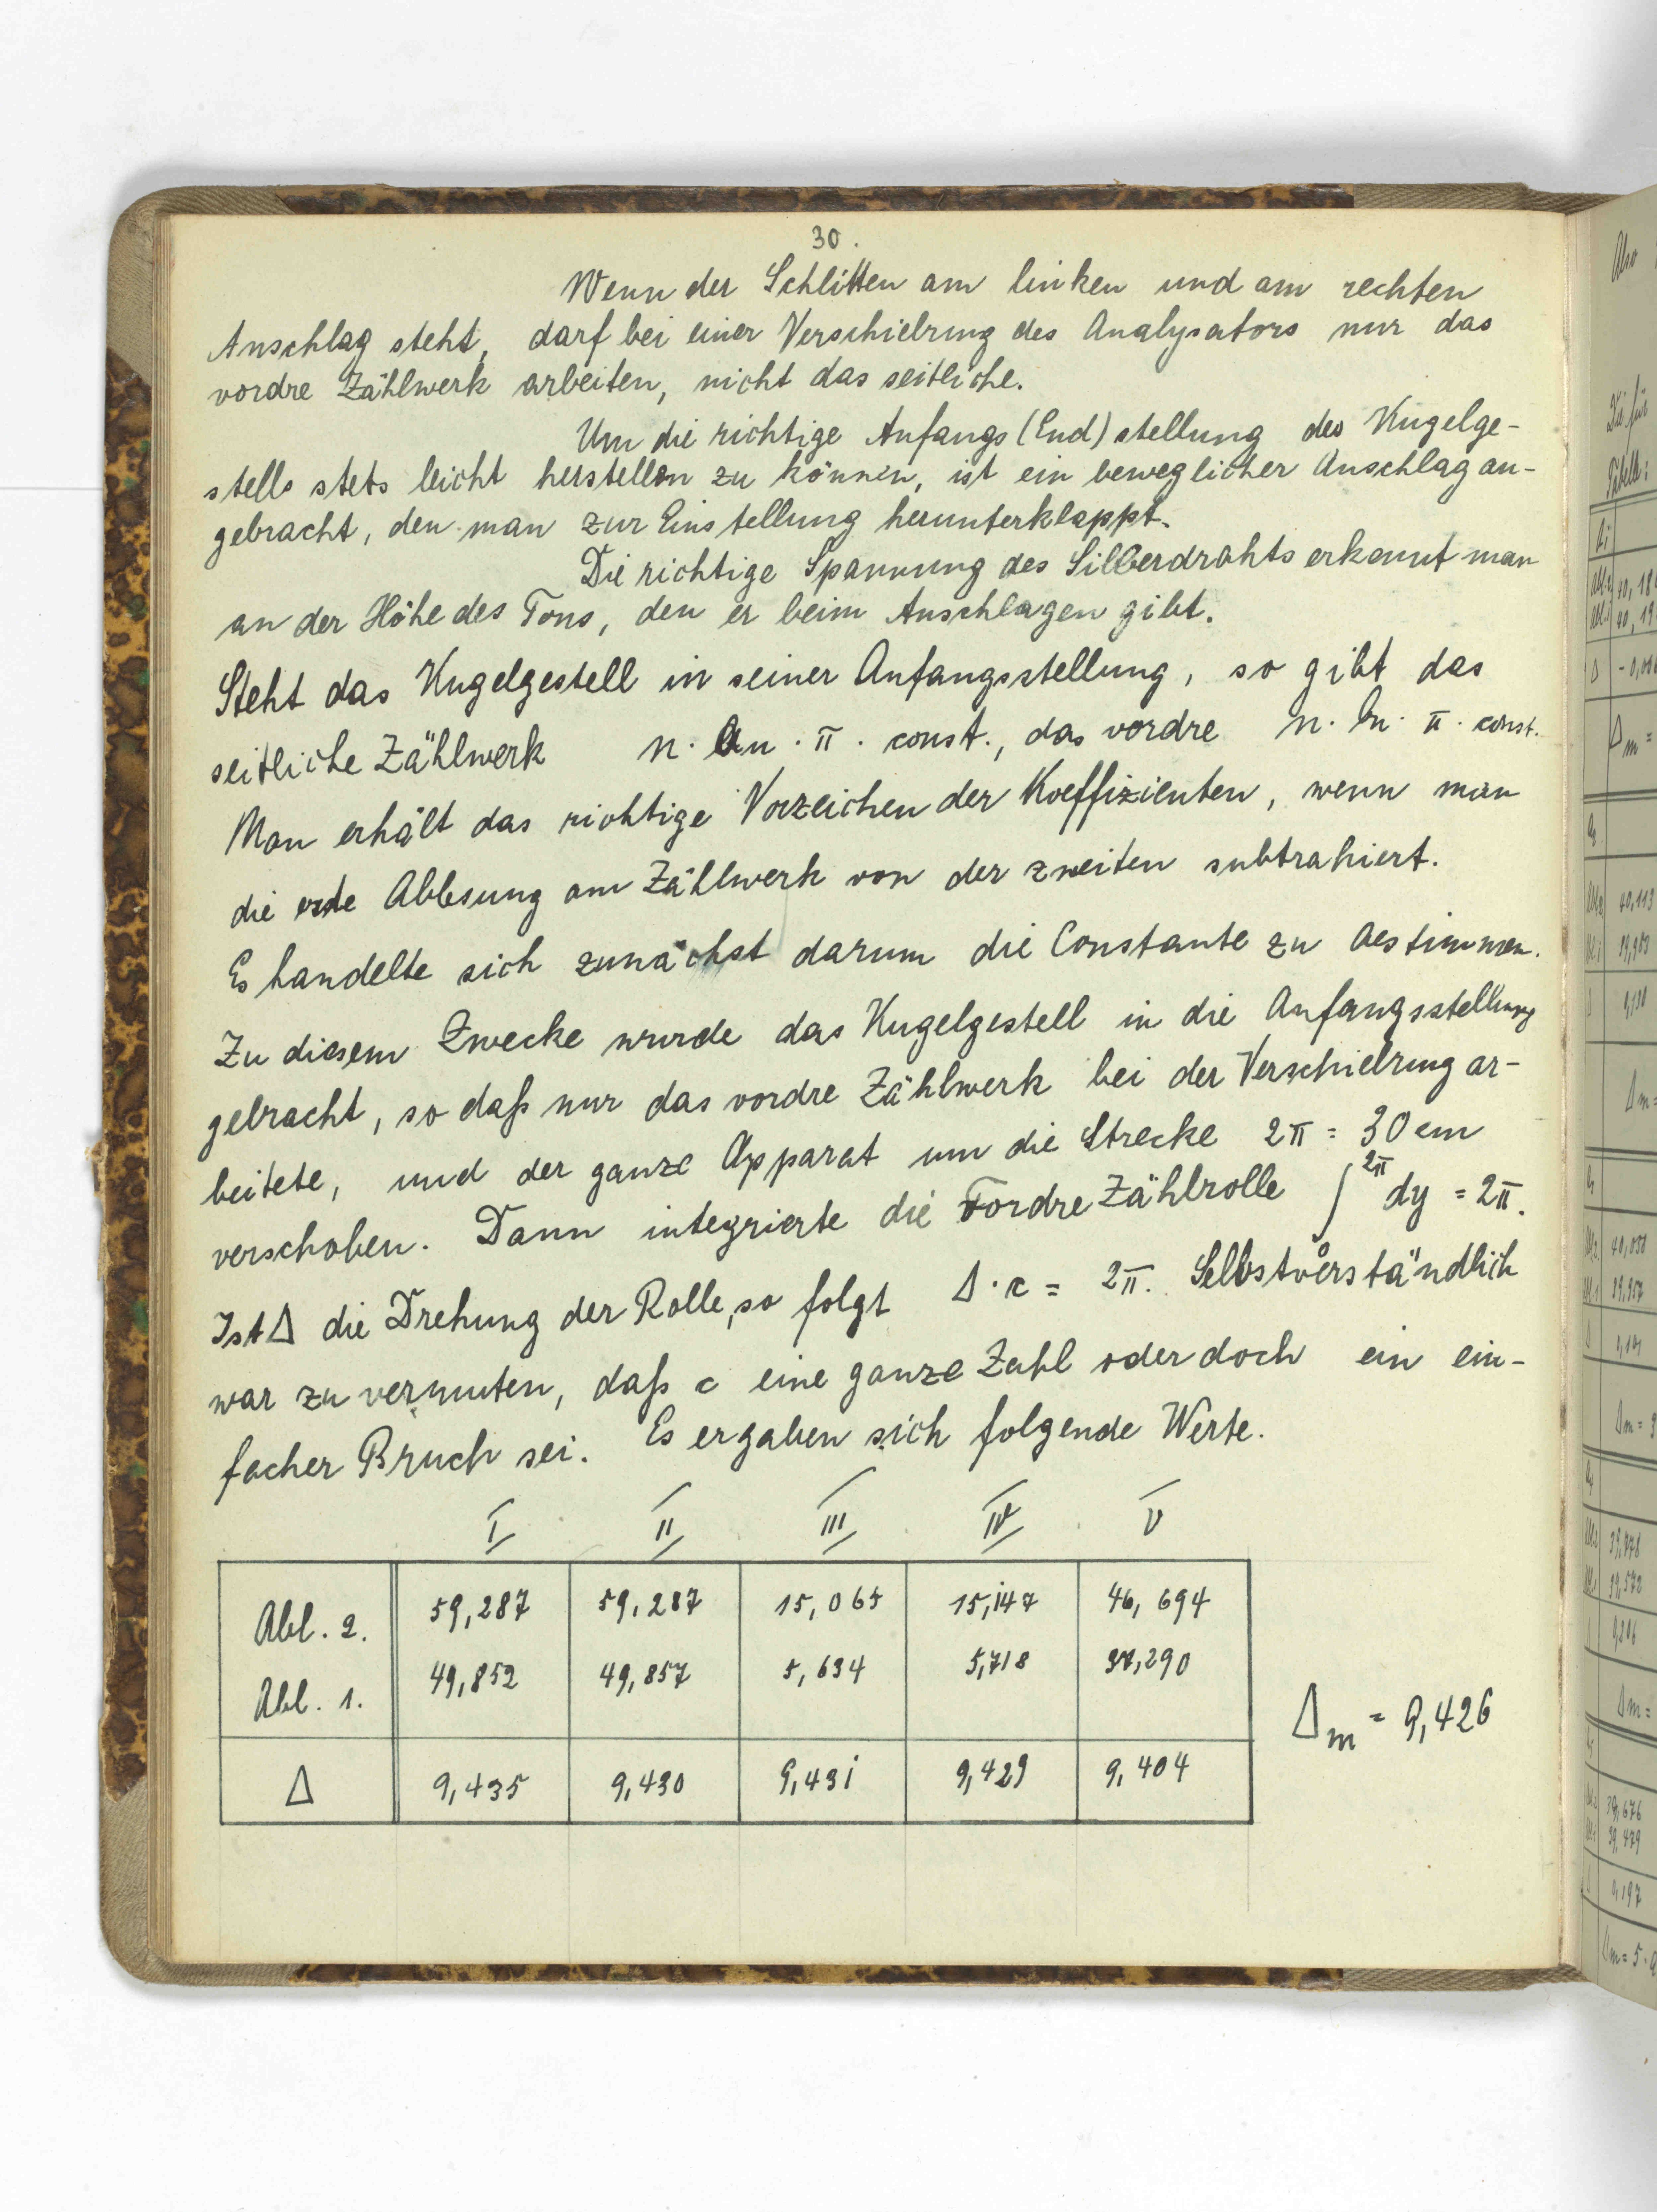 30.
Wenn der Schlitten am linken und am rechten
Anschlag steht, darf bei einer Verschiebung des Analysators nur das
vordre Zählwerk arbeiten, nicht das seitliche.
Um die richtige Anfangs (End) stellung des Kugelge-
stells stets leicht herstellen zu können, ist ein beweglicher Anschlag an-
gebracht, den man zur Einstellung herunterklappt.
Die richtige Spannung des Silberdrahts erkennt man
an der Höhe des Tons, den er beim Anschlagen gibt.
Steht das Kugelgestell in seiner Anfangsstellung, so gibt das
seitliche Zählwerk n. an . π . const., das vordre n. bn . π . const.
Man erhält das richtige Vorzeichen der Koeffizienten, wenn man
die erste Ablesung am Zählwerk von der zweiten subtrahiert.
Es handelte sich zunächst darum die Constante zu bestimmen.
Zu diesem Zwecke wurde das Kugelgestell in die Anfangsstellung
gebracht, so daß nur das vordre Zählwerk bei der Verschiebung ar-
beitete, und der ganze Apparat um die Strecke 2π = 30 cm
verschoben. Dann integrierte die vordre Zählrolle ∫^2π dy = 2π.
Ist Δ die Drehung der Rolle, so folgt Δ · c = 2π. Selbstverständlich
war zu vermuten, daß c eine ganze Zahl oder doch ein ein-
facher Bruch sei. Es ergaben sich folgende Werte.
I II III IV V
Abl. 2. 59,287 59,287 15,065 15,147 46,694
Abl. 1. 49,852 49,857 5,634 5,718 37,290
Δ 9,435 9,430 9,431 9,429 9,404
Δm = 9,426
Also
Die für
Tabelle:
Δ
Δm =
40,113
39,957
Δm =
40,050
39,676
39,479
0,197
Δm = 5.